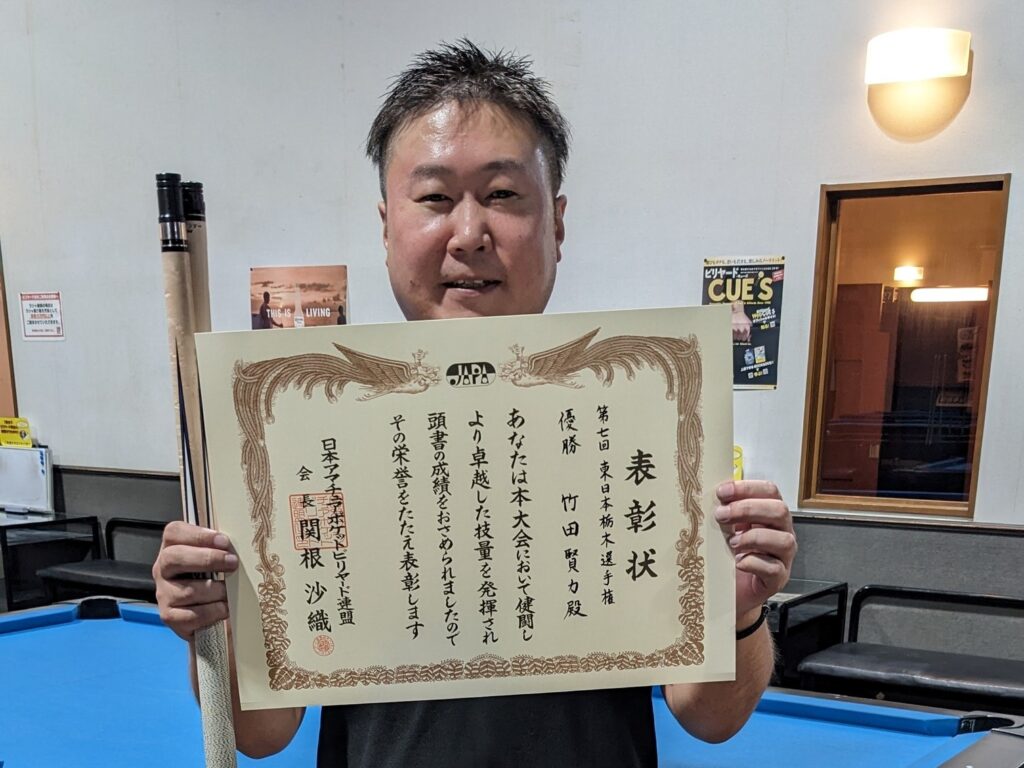 JAPA
表彰状
第七回 東日本栃木選手権
優勝 竹田賢力殿
あなたは本大会において健闘し
より卓越した技量を発揮され
頭書の成績をおさめられましたので
その栄誉をたたえ表彰します
日本アマチュアポケットビリヤード連盟
会長 関根沙織
THIS IS LIVING
ビリヤード
CUE'S